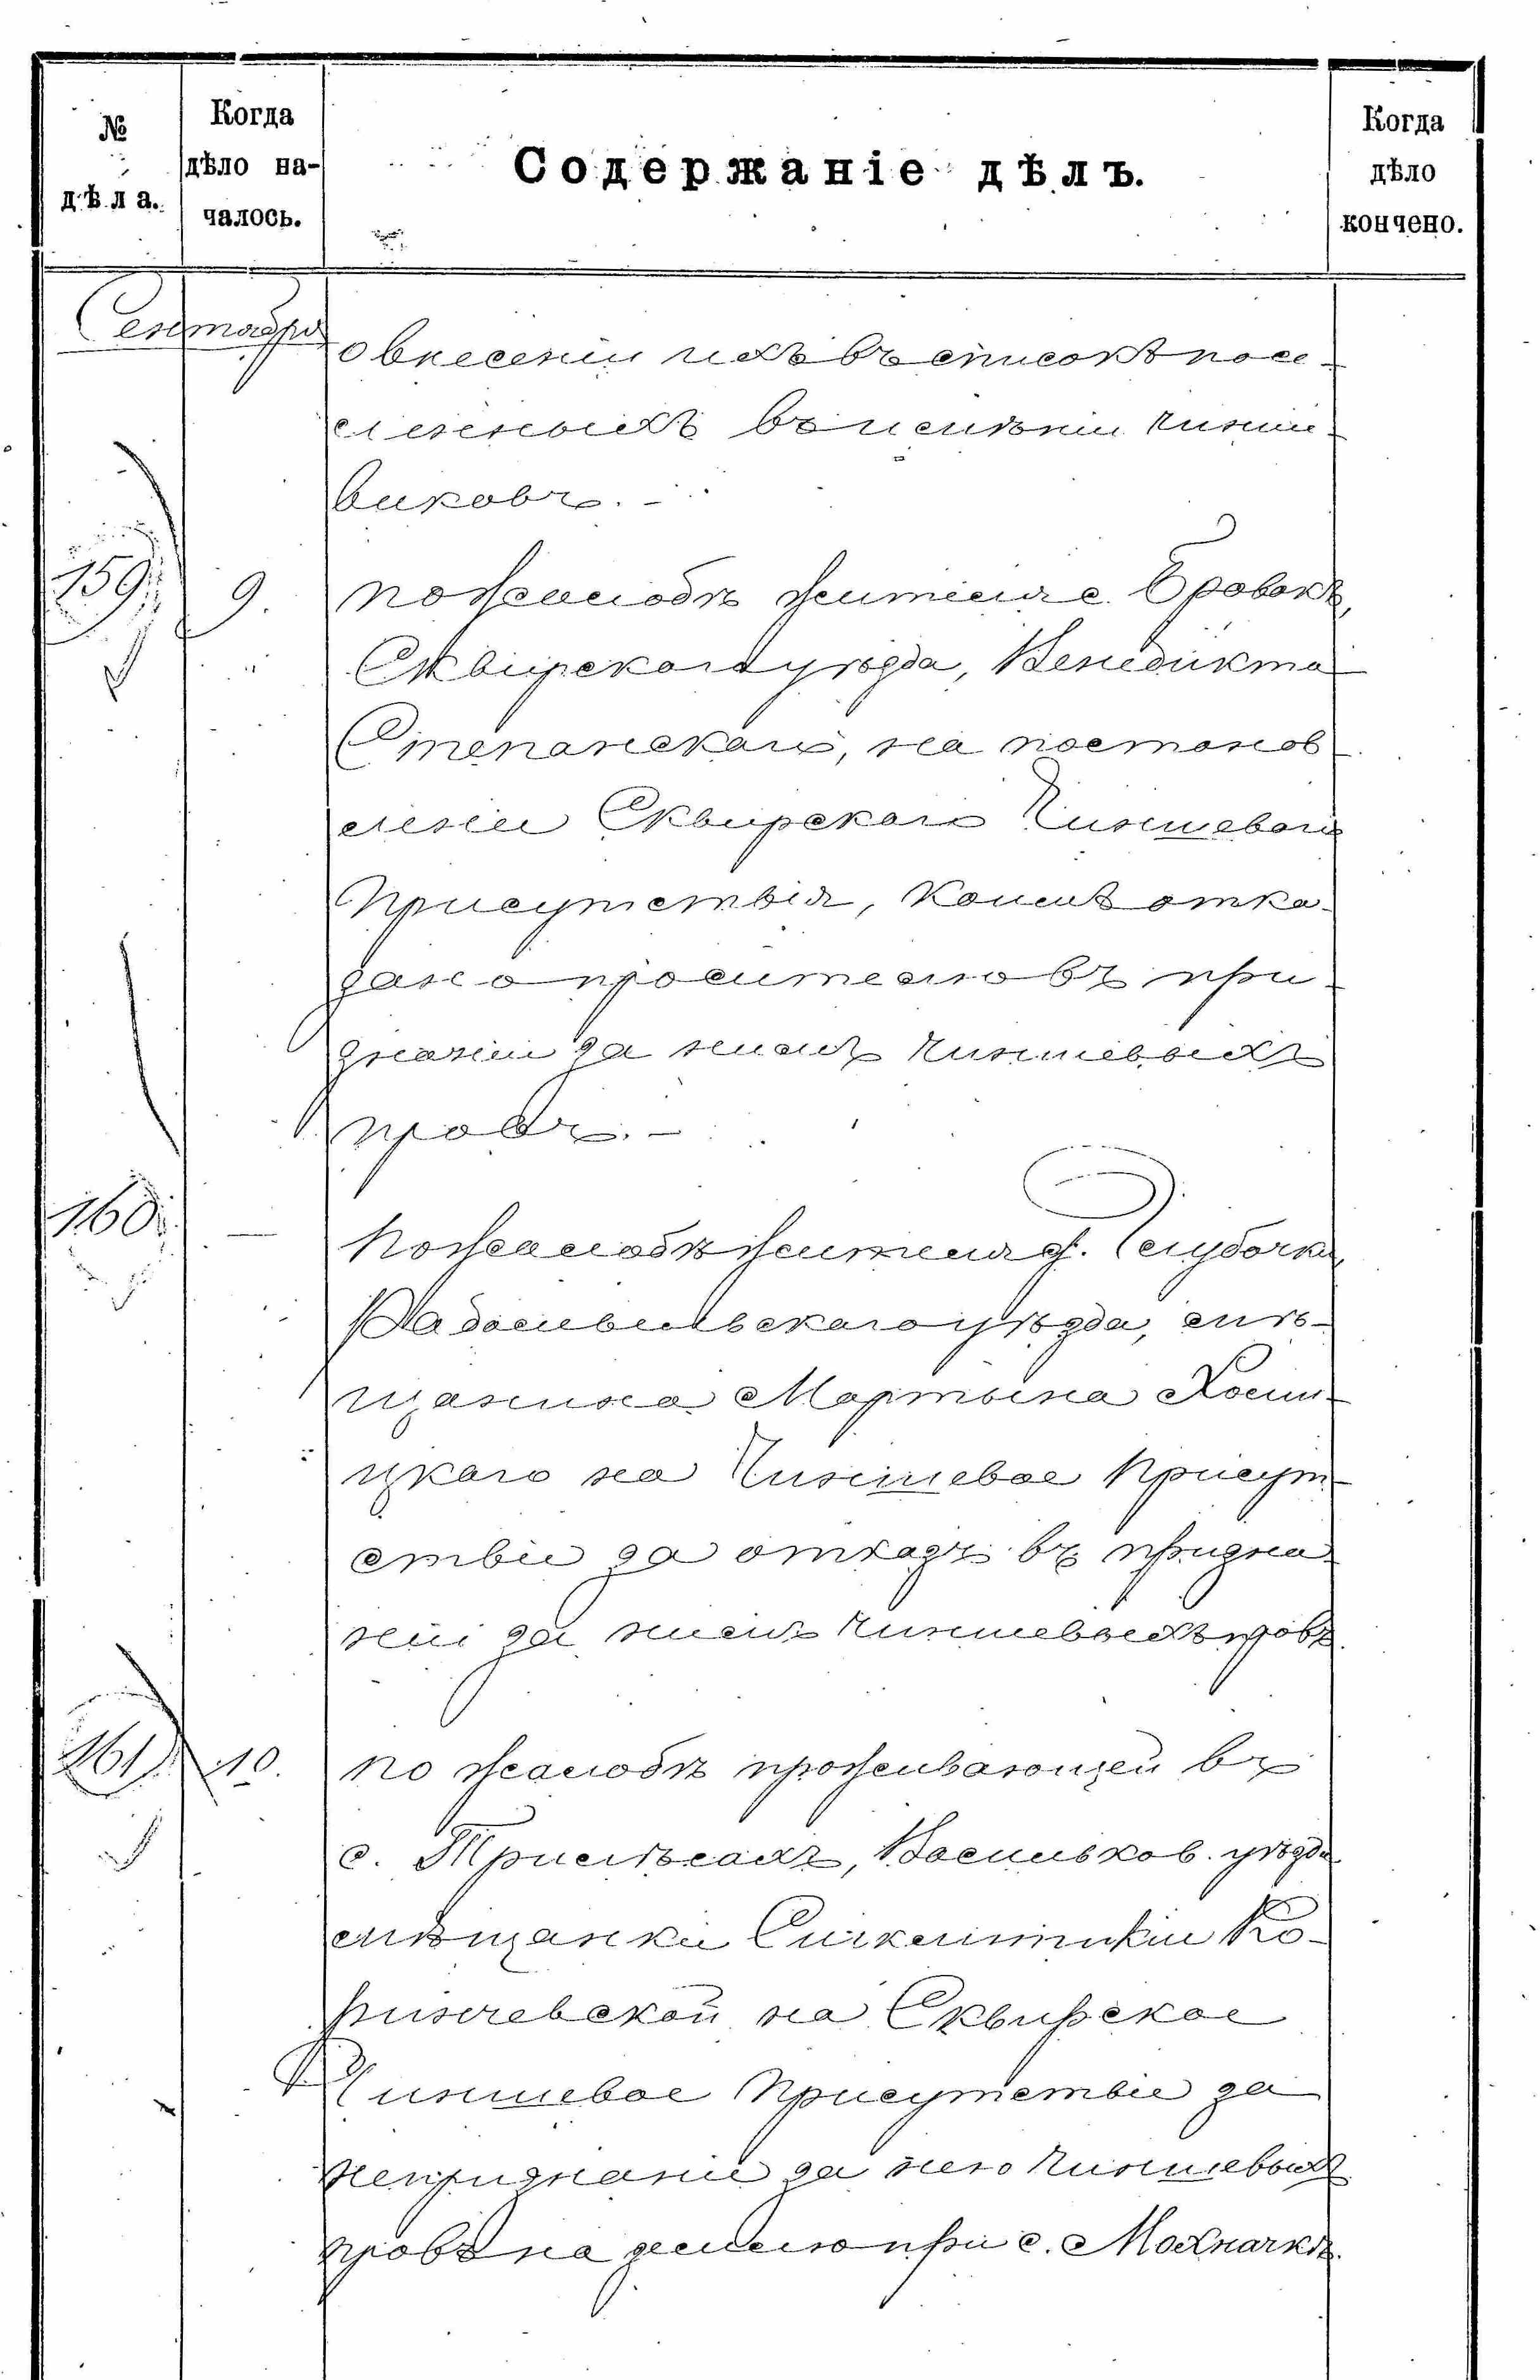 №
дѣла.
Когда
дѣло на-
чалось.
Содержаніе дѣлъ.
Когда
дѣло
кончено.
Сентября
о внесеніи ихъ въ списокъ посе-
ленныхъ въ имѣніи чинше-
виковъ. -
159. 9. по жалобѣ жителя с. Бровокъ,
Сквирскаго уѣзда, Венедикта
Степанскаго, на постанов
леніе Сквирскаго Чиншеваго
Присутствія, коимъ отка-
зано просителю въ при-
знаніи за нимъ чиншевыхъ
правъ. -
160. — по жалобѣ жителя д. Глубочки,
Радомысльскаго уѣзда, мѣ-
щанина Мартына
цкаго на Чиншевое Присут-
ствіе за отказъ въ призна
ніи за нимъ чиншевыхъ правъ
161. 10. по жалобѣ проживающей въ
с. Трилѣсахъ, Васильков. уѣзда
мѣщанки Ко-
ричевской на Сквирское
Чиншевое Присутствіе за
непризнаніе за нею чиншевыхъ
правъ на землю при с. Махначкѣ.